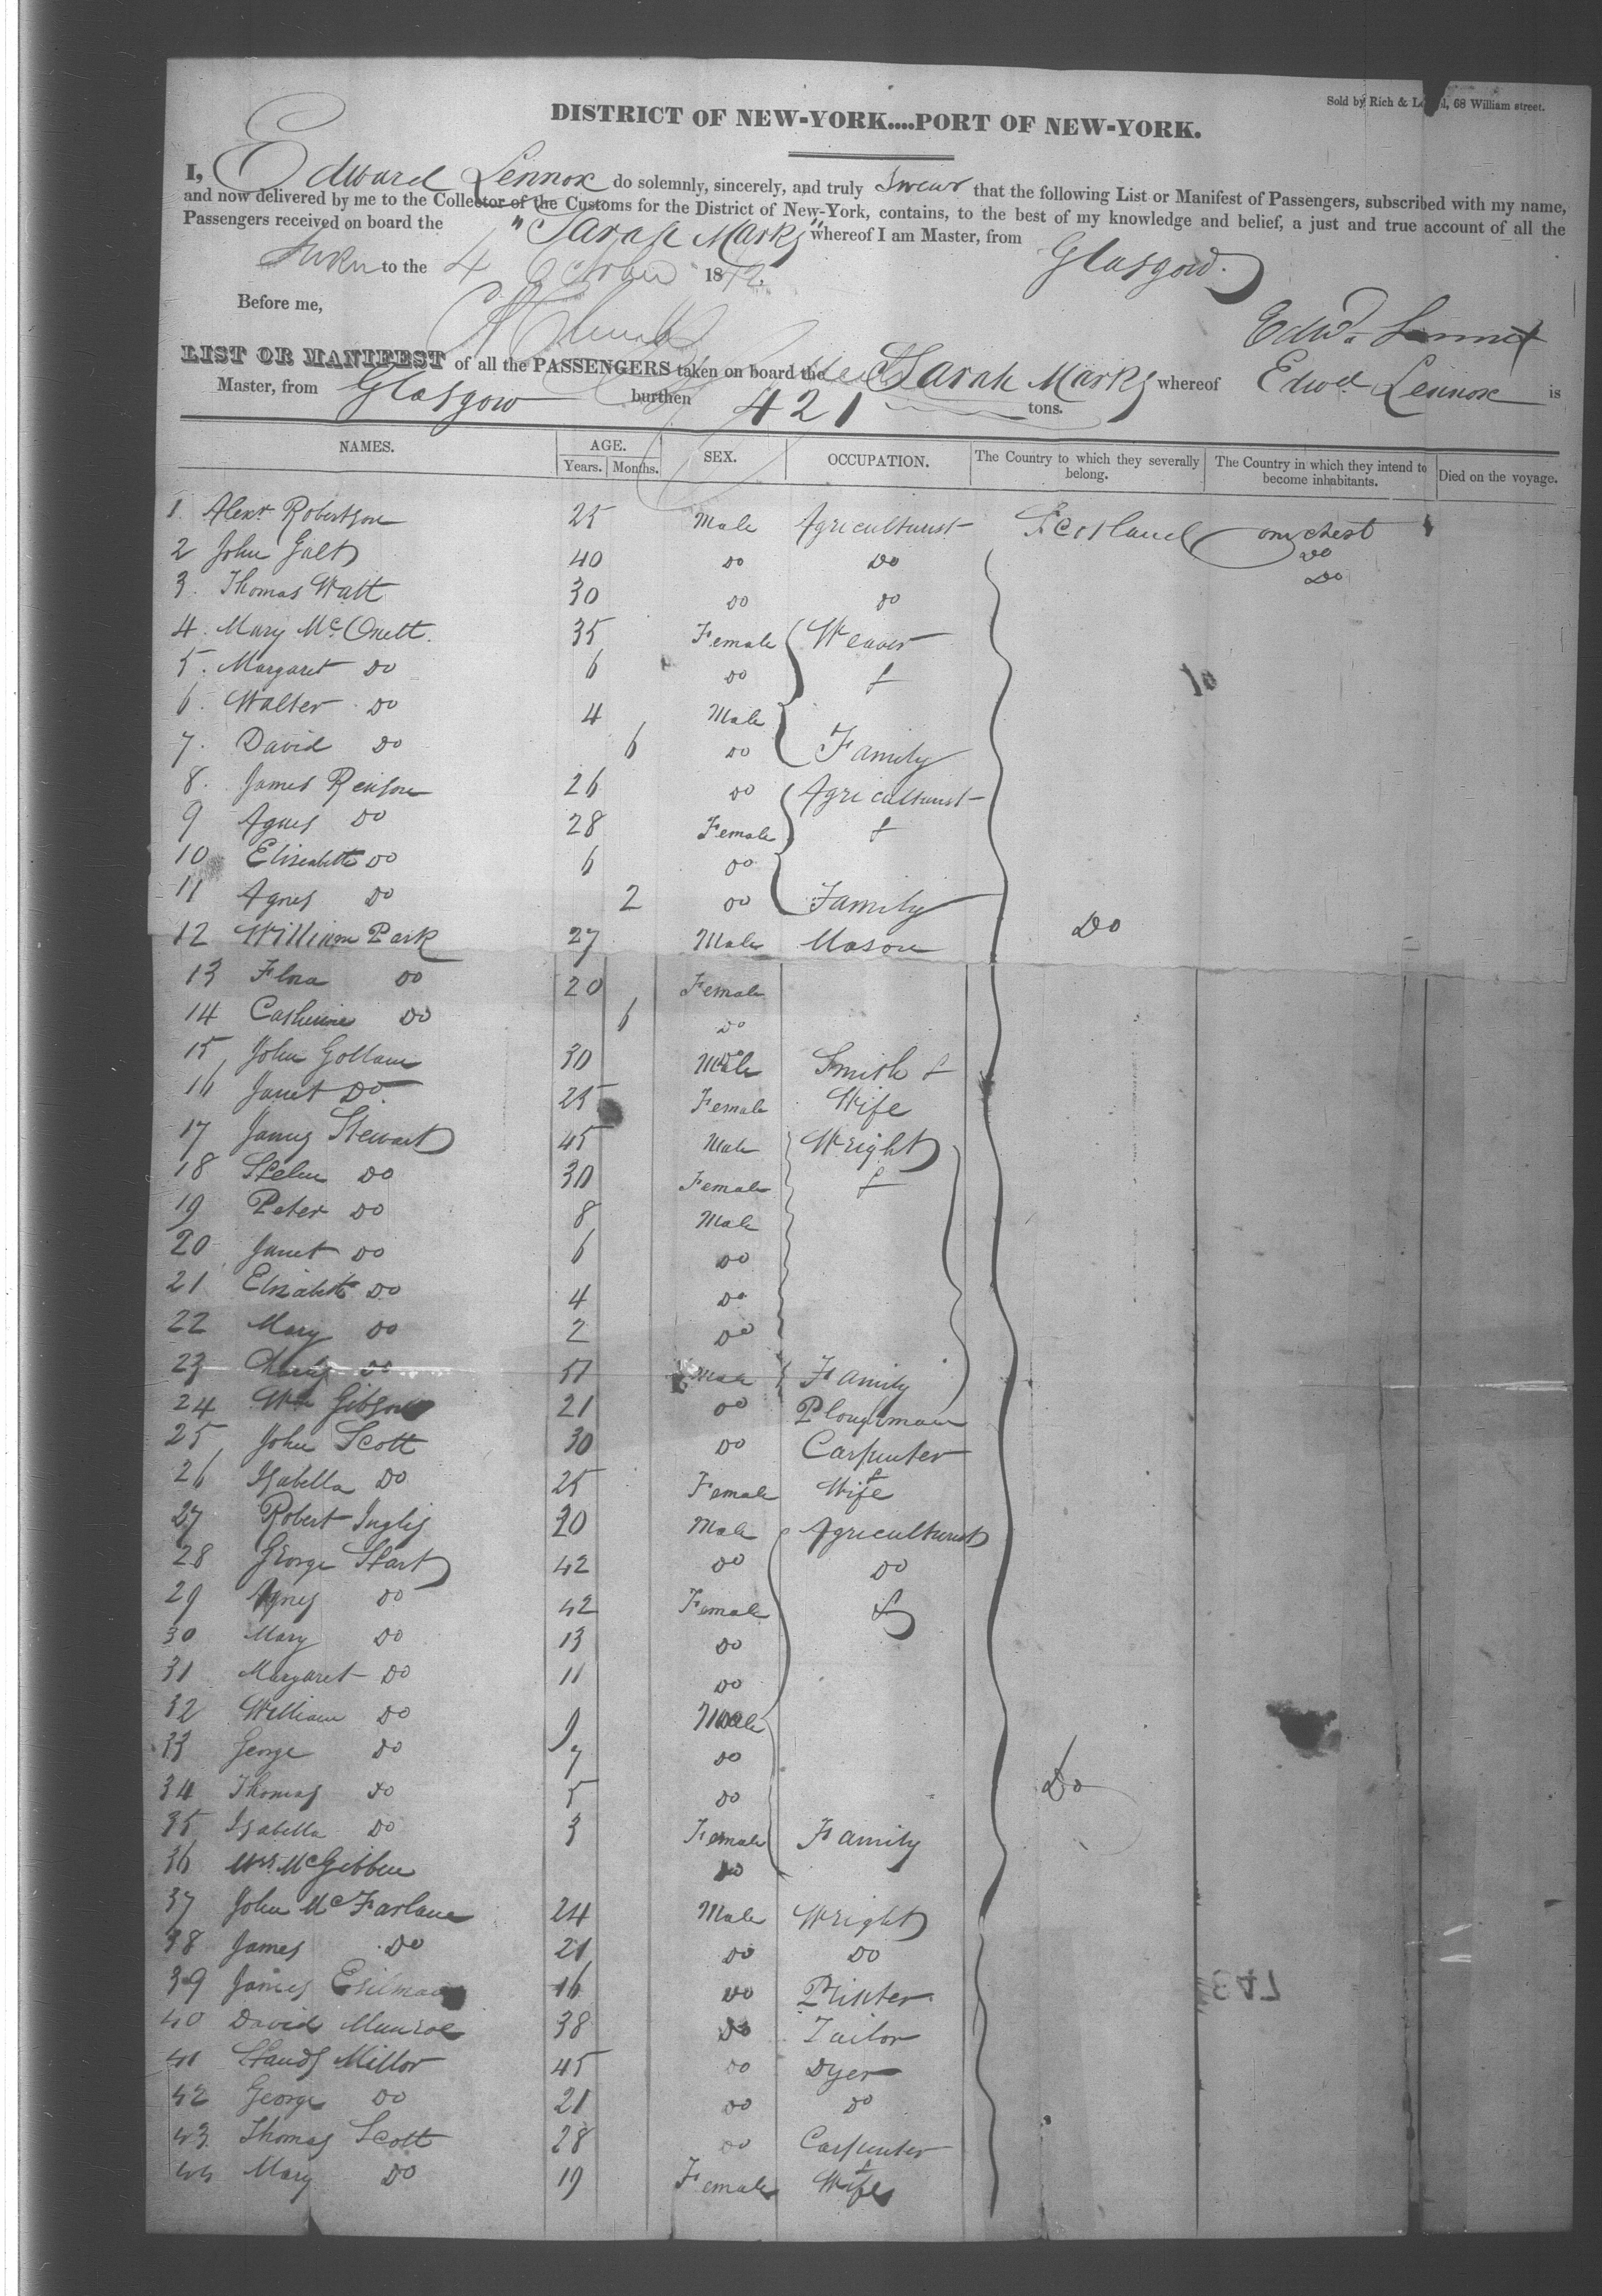 Sold by Rich & L, 68 William street.
DISTRICT OF NEW-YORK....PORT OF NEW-YORK.
I, Edward Lennox do solemnly, sincerely, and truly Swear that the following List or Manifest of Passengers, subscribed with my name,
and now delivered by me to the Collector of the Customs for the District of New-York, contains, to the best of my knowledge and belief, a just and true account of all the
Passengers received on board the "Sarah Marks" whereof I am Master, from Glasgow.
to the 4 October 1842.
Before me,
Edwd. Lennox
LIST OR MANIFEST of all the PASSENGERS taken on board the Sarah Marks whereof Edwd Lennox is
Master, from Glasgow burthen 421 tons.
NAMES. AGE. Years. Months. SEX. OCCUPATION. The Country to which they severally belong. The Country in which they intend to become inhabitants. Died on the voyage.
1. Alexr Robertson 25 Male Agriculturist Scotland one chest
2 John Galt 40 Do Do Do
3. Thomas Watt 30 Do Do Do
4. Mary Mc Onett. 35 Female Weaver
5. Margaret Do 6 Do &
6. Walter Do 4 Male
7. David Do 6 Do Family
8. James Renson 26 Do Agriculturist
9 Agnes Do 28 Female &
10 Elizabeth Do 6 Do
11 Agnes Do 2 Do Family
12 William Park 27 Male Mason Do
13 Flora Do 20 Female
14 Catherine Do 6 Do
15, John Gollam 30 Male Smith &
16 Janet Do. 25 Female Wife
17 James Stewart 45 Male Wright
18 Do 30 Female &
19 Peter Do 8 Male
20 Janet Do 6 Do
21 Elizabeth Do 4 Do
22 Mary Do 2 Do
23 Do 17 Male Family
24 Wm Gibson 21 Do Ploughman
25, John Scott 30 Do Carpenter
26 Isabella Do 25 Female & Wife
27 Robert Inglis 30 Male Agriculturist
28 George Start 42 Do Do
29 Agnes Do 42 Female &
30 Mary Do 13 Do
31 Margaret Do 11 Do
32 William Do 9 Male
33 George Do 7 Do
34 Thomas Do 5 Do Do
35 Isabella Do 3 Female Family
36 Mrs. McGibbon Do
37 John McFarlane 24 Male Wright
38 James Do 21 Do Do
39 James 16 Do Printer
40 David Munroe 38 Do Tailor
41 Millor 45 Do Dyer
42 George Do 21 Do Do
43. Thomas Scott 28 Do Carpenter
44 Mary Do 19 Female & Wife